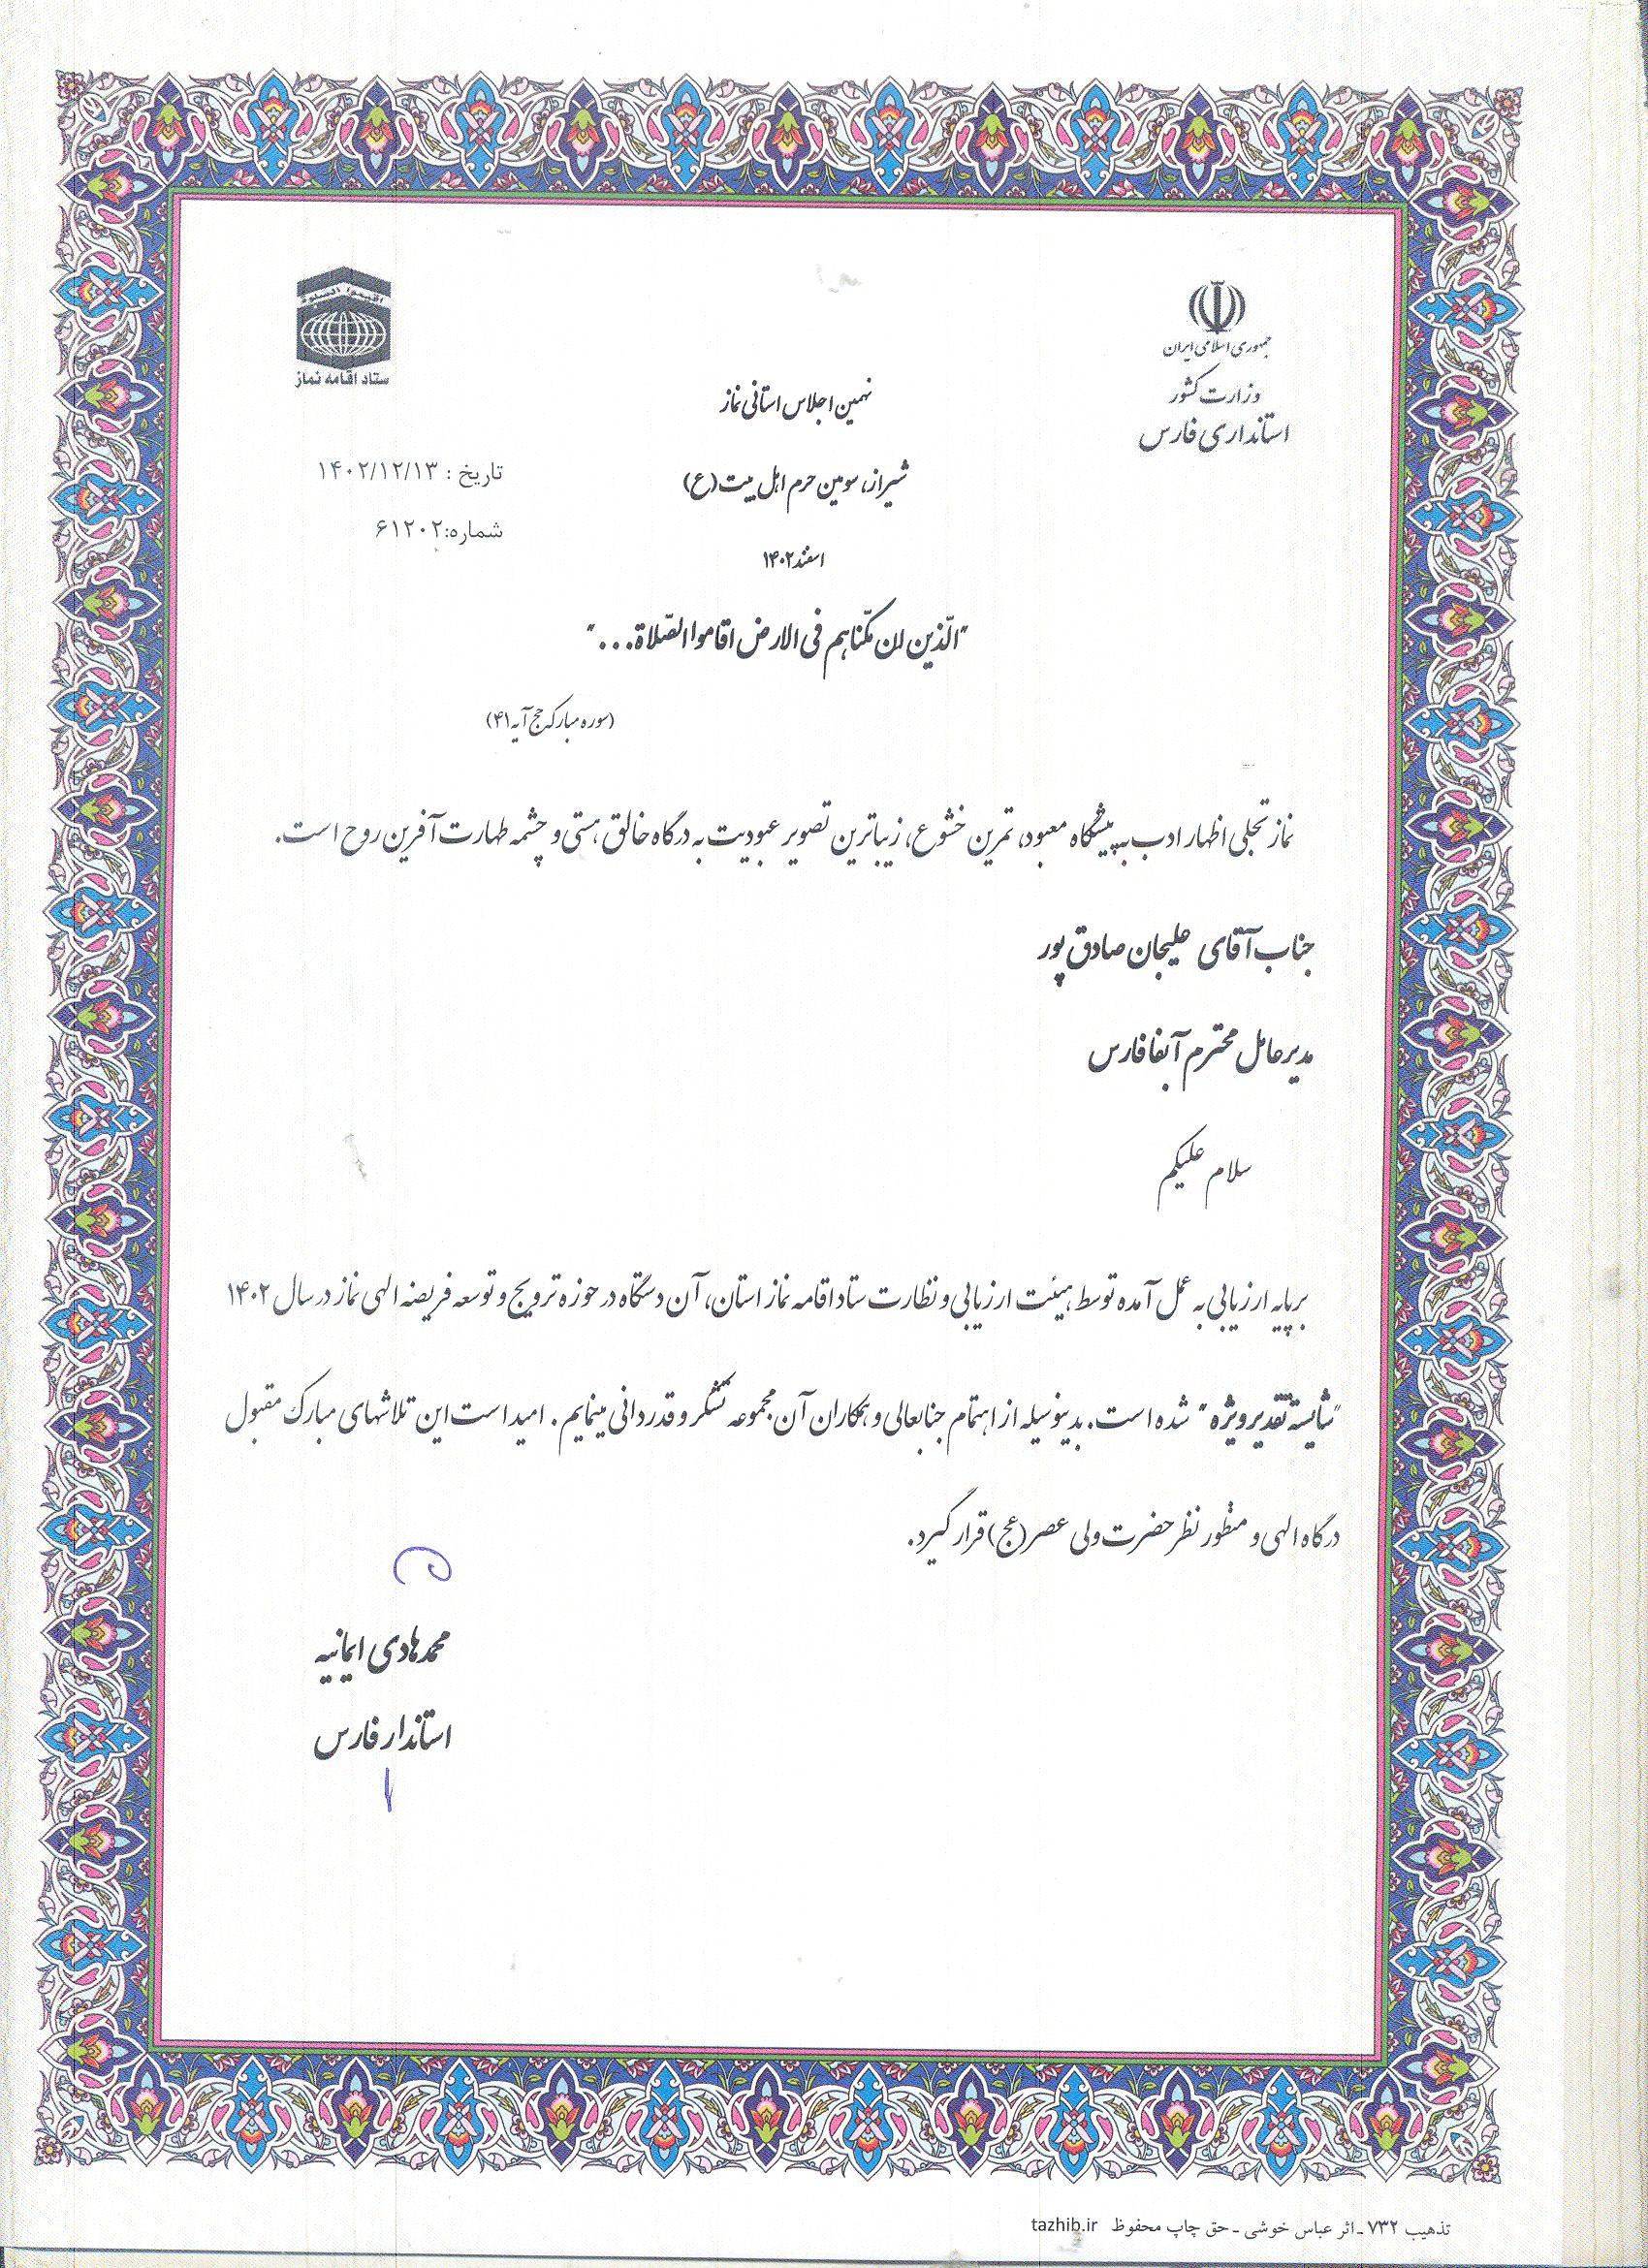 جمهوری اسلامی ایران
وزارت کشور
استانداری فارس
اقیموا الصلوة
ستاد اقامه نماز
تاریخ : ۱۴۰۲/۱۲/۱۳
شماره:۶۱۲۰۲
نهمین اجلاس استانی نماز
شیراز، سومین حرم اهل بیت(ع)
اسفند۱۴۰۲
"الّذین ان مکّناهم فی الارض اقاموا الصّلاة..."
(سوره مبارکه حج آیه ۴۱)
نماز تجلی اظهار ادب به پیشگاه معبود، تمرین خشوع، زیباترین تصویر عبودیت به درگاه خالق هستی و چشمه طهارت آفرین روح است.
جناب آقای علیجان صادق پور
مدیرعامل محترم آبفا فارس
سلام علیکم
برپایه ارزیابی به عمل آمده توسط هیئت ارزیابی و نظارت ستاد اقامه نماز استان، آن دستگاه در حوزه ترویج و توسعه فریضه الهی نماز در سال ۱۴۰۲
"شایسته تقدیر ویژه" شده است. بدینوسیله از اهتمام جنابعالی و همکاران آن مجموعه تشکر و قدردانی مینمایم. امید است این تلاشهای مبارک مقبول
درگاه الهی و منظور نظر حضرت ولی عصر(عج) قرار گیرد.
محمدهادی ایمانیه
استاندار فارس
تذهیب ۷۳۲ ـ اثر عباس خوشی ـ حق چاپ محفوظ tazhib.ir